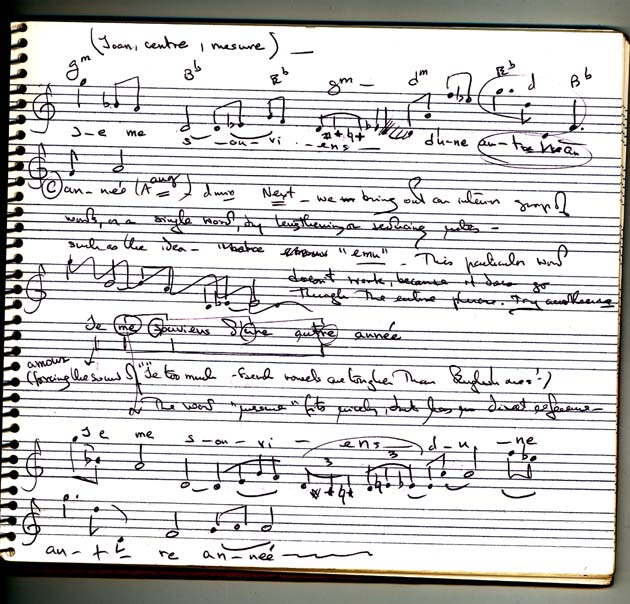 (Joan, centre, mesure) —
gm Bb Eb gm — dm Bb d Bb
J-e me s-ou-vi-ens — d'u-ne au-tre
C an-née (A aug) d min Next — we bring out an intern group of
words, or a single word, by lengthening or reducing notes —
such as the idea — "emu" — This particular word
doesn't work, because it does go
through the entire phrase. Try another
Je me souviens d'une autre année
amour
(forcing the sound "Je" too much — French vowels are tougher than English ones!)
The word "mesure" fits nicely, but has no direct reference —
Je me s-ou-vi-ens d-u-ne
3 3
an-t- re an-née